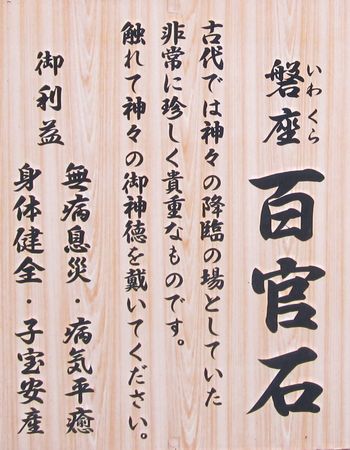 磐座 百官石
いわくら
古代では神々の降臨の場としていた
非常に珍しく貴重なものです。
触れて神々の御神徳を戴いてください。
御利益
無病息災・病気平癒
身体健全・子宝安産